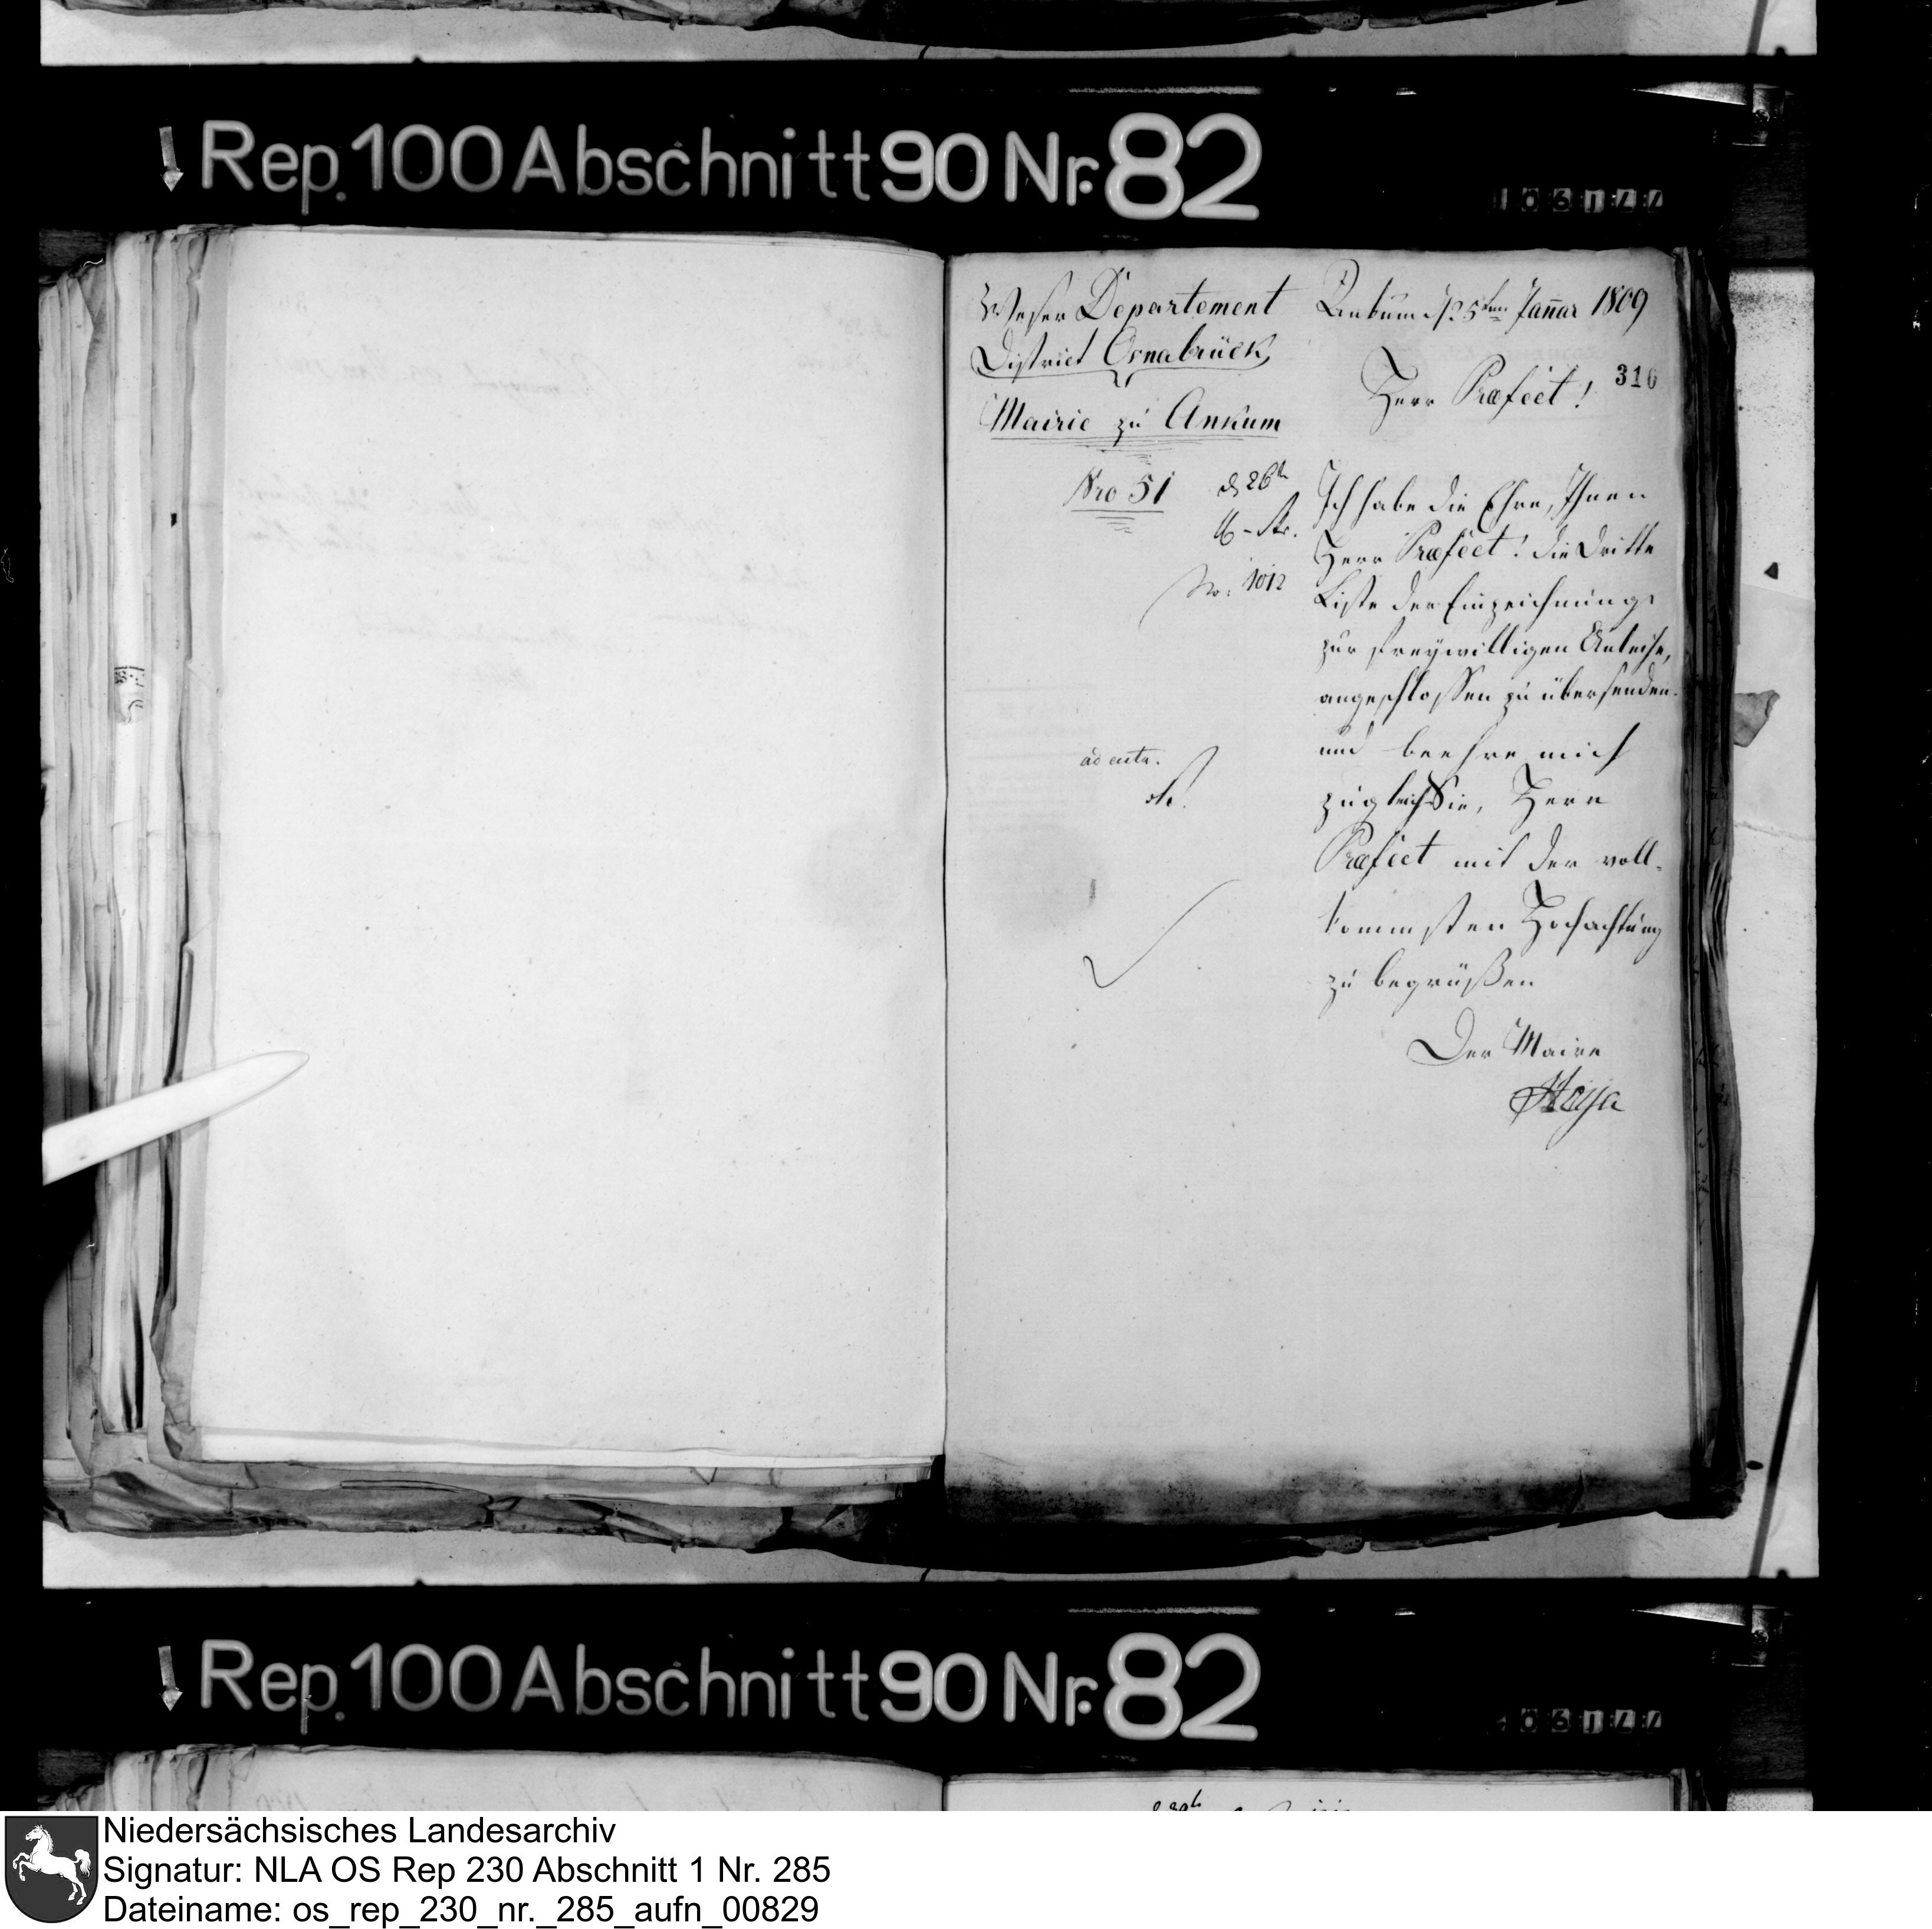 Rep. 100 Abschnitt 90 Nr. 82
Weser Departement
District Osnabrück
Mairie zu Ankum
Nro 51
No: 1012
ad acta.
Ankum d 25ten Januar 1809
316
Herr Præfect!
Ich habe die Ehre, Ihnen
Herr Præfect! die dritte
Liste der Einzeichnung
zur freywilligen Anleihe,
angeschlossen zu übersenden
und beehre mich
zugleich Sie, Herr
Præfect mit der voll-
kommsten Hochachtung
zu begrüßen
Der Maire
Rep. 100 Abschnitt 90 Nr. 82
Niedersächsisches Landesarchiv
Signatur: NLA OS Rep 230 Abschnitt 1 Nr. 285
Dateiname: os_rep_230_nr._285_aufn_00829